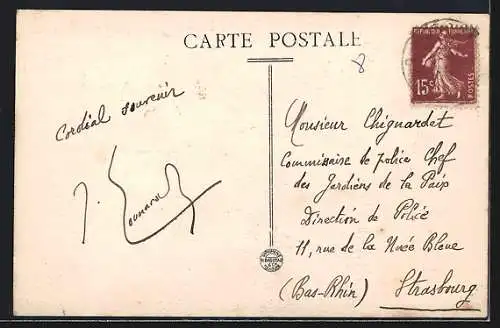 CARTE POSTALE
8
RÉPUBLIQUE FRANÇAISE
15c
POSTES
Cordial souvenir
J.
Monsieur Chignardet
Commissaire de police Chef
des Gardiens de la Paix
Direction de Police
11, rue de la Nuée Bleue
(Bas-Rhin) Strasbourg